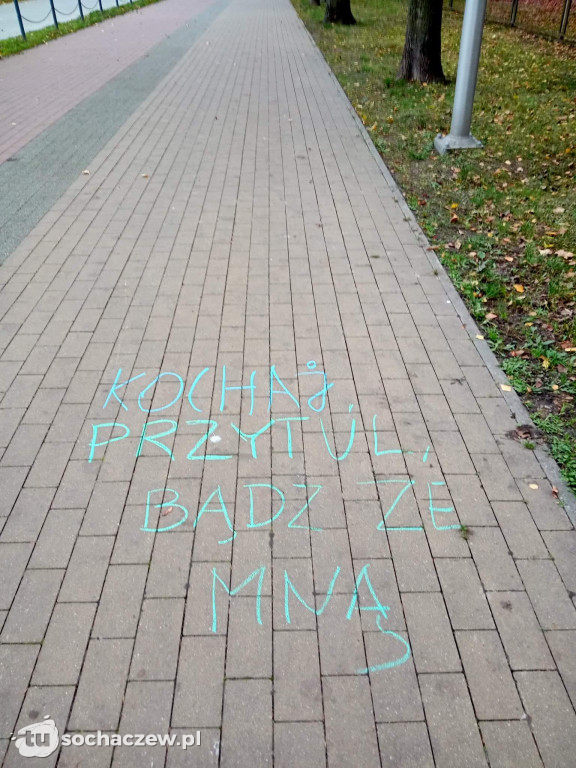 KOCHAJ,
PRZYTUL,
BĄDZ ZE
MNĄ
tuSOCHACZEW.pl